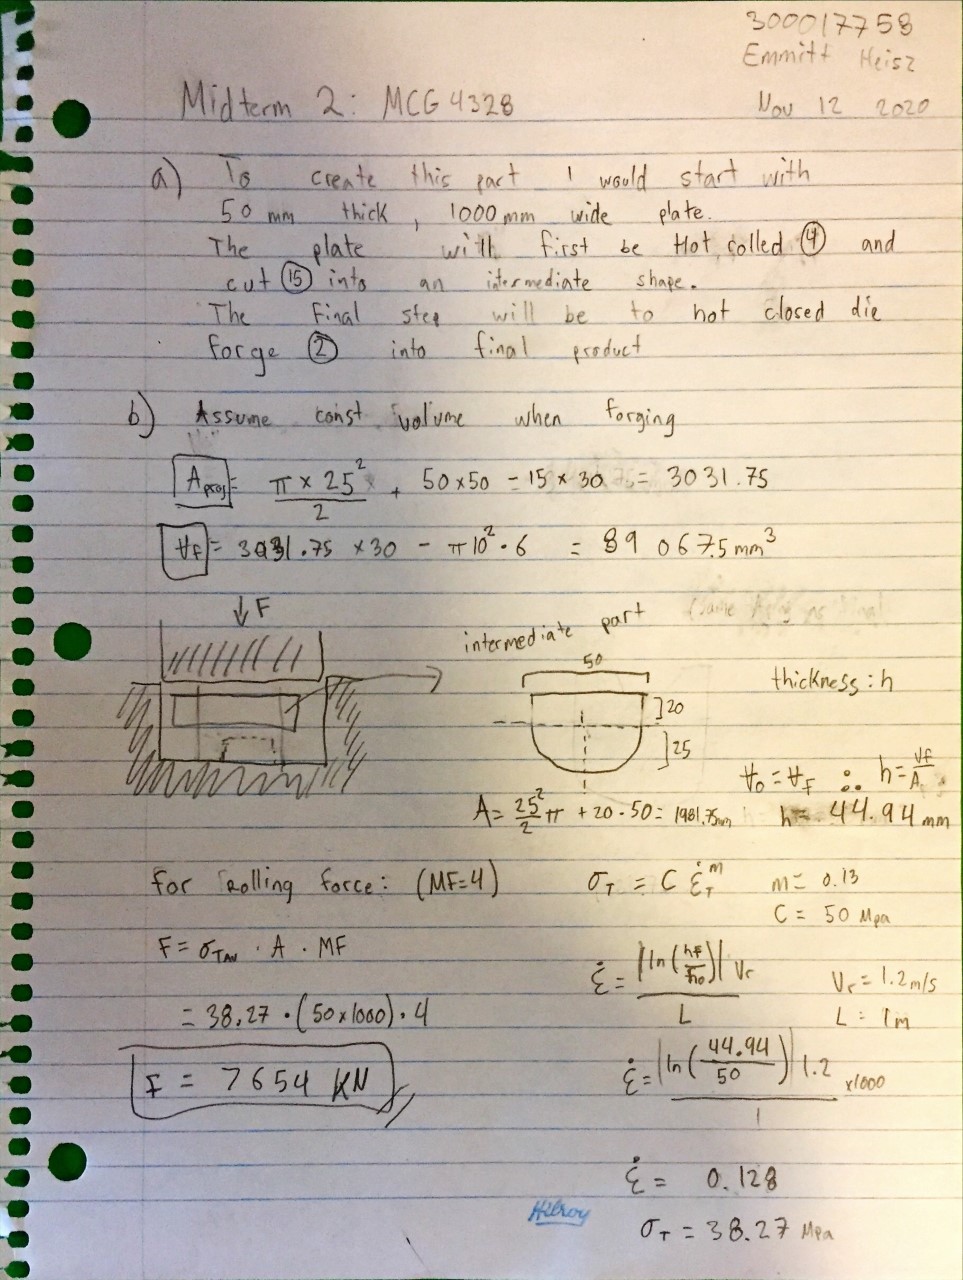 300017758
Emmitt Heisz
Midterm 2: MCG 4328
Nov 12 2020
a) To create this part I would start with
50 mm thick, 1000 mm wide plate.
The plate with first be Hot rolled ④ and
cut ⑮ into an intermediate shape.
The final step will be to hot closed die
forge ② into final product
b) Assume const volume when forging
A proj = π × 25² / 2 + 50×50 - 15 × 30 = 3031.75
V̶f = 3031.75 × 30 - π10²·6 = 89 067.5 mm³
↓F
intermediate part
50
thickness: h
]20
]25
V̶o = V̶F ∴ h = V̶f/A
A = 25²/2 π + 20·50 = 1981.75mm
h = 44.94 mm
For Rolling force: (MF=4)
σT = C ε̇T^m
m = 0.13
C = 50 Mpa
F = σTAV · A · MF
ε̇ = |ln(hf/ho)| Vr / L
Vr = 1.2 m/s
L = 1m
= 38.27 · (50×1000) · 4
ε̇ = |ln(44.94/50)| 1.2 / 1 ×1000
F = 7654 KN
ε̇ = 0.128
σT = 38.27 Mpa
Hilroy